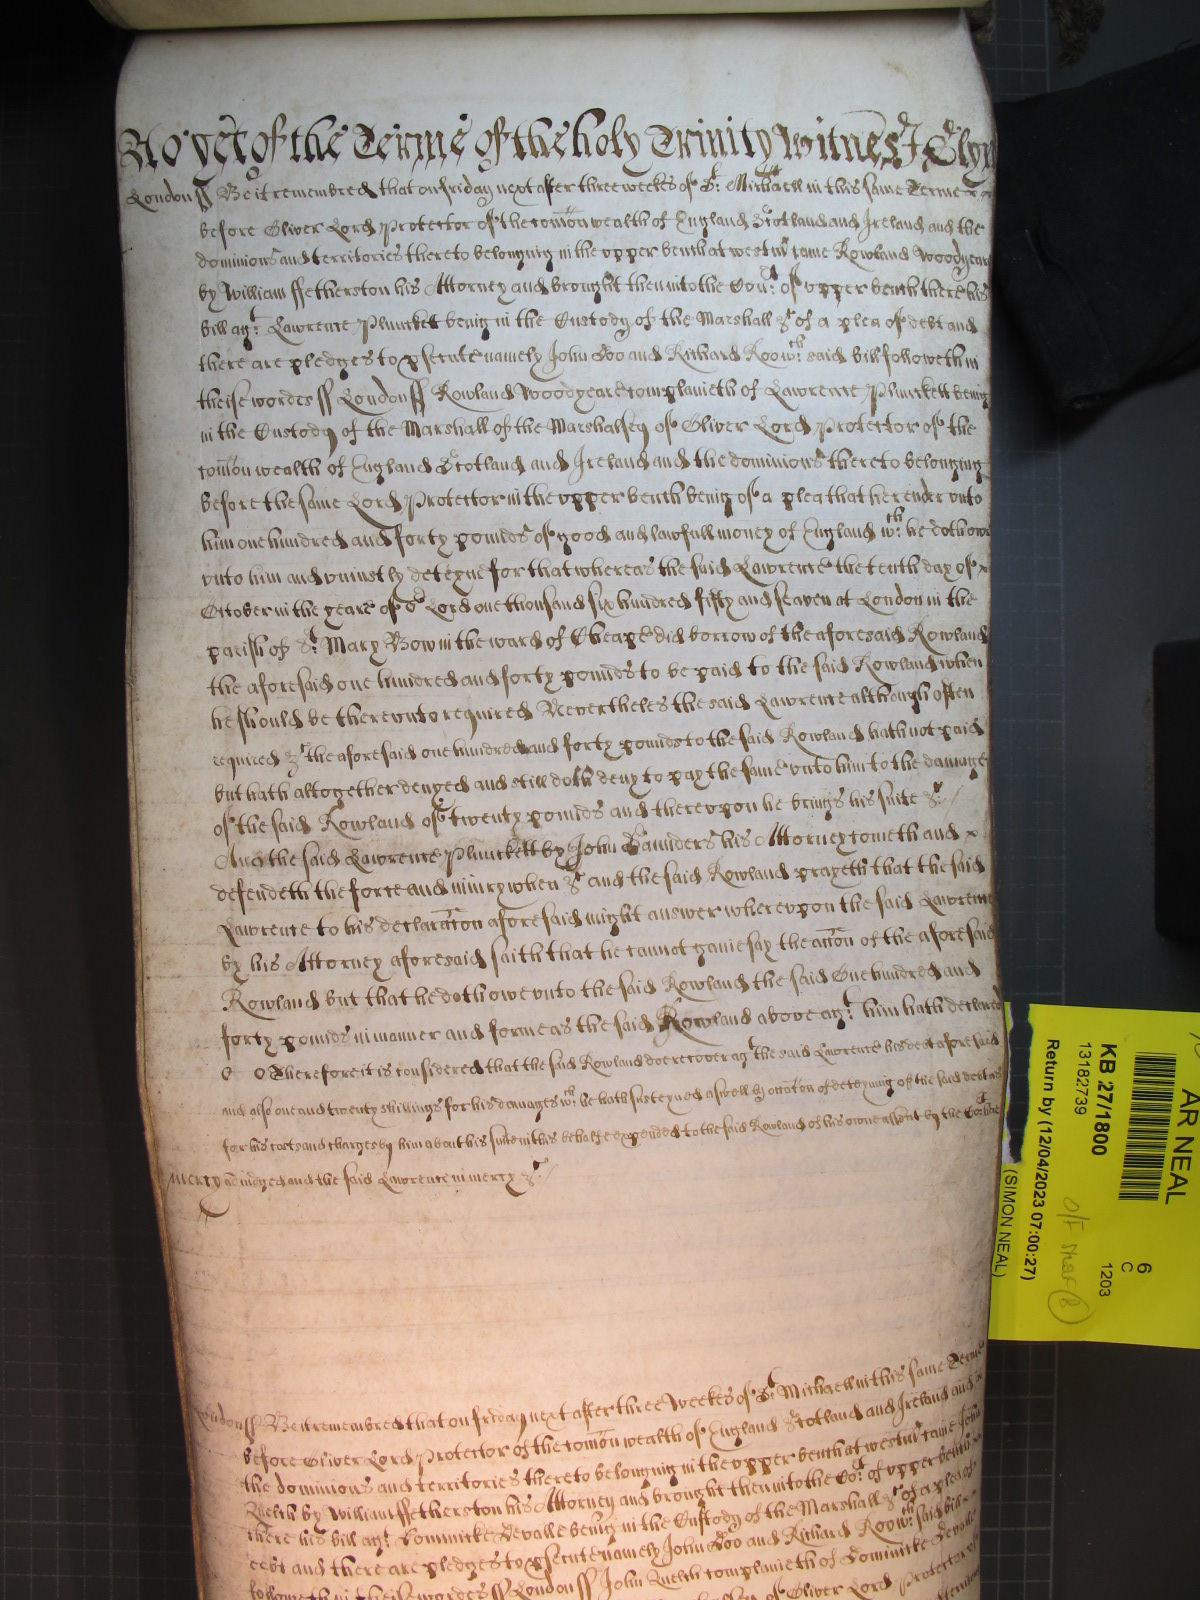 As yet of the Terme of the holy Trinity Witnes J Gly
London ss Be it remembred that on friday next after three weekes of St. Michaell in this same Terme
before Oliver Lord Protector of the comon wealth of England Scotland and Ireland and the
dominions and territories thereto belonging in the upper bench at westmr came Rowland Woodyeare
by William ffetherston his Attorney and brought then into the Cort. of upper bench there his
bill agt. Lawrence Plunckett being in the Custody of the Marshall &c of a plea of debt and
there are pledges to psecute namely John Doo and Richard Roo wch. said bill followeth in
theise wordes ss London ss Rowland Woodyeare complaineth of Lawrence Plunckett being
in the Custody of the Marshall of the Marshalsey of Oliver Lord Protector of the
comon wealth of England Scotland and Ireland and the dominions thereto belonging
before the same Lord Protector in the upper bench being of a plea that he render unto
him one hundred and forty pounds of good and lawfull money of England wch. he doth owe
unto him and uniustly deteyne for that whereas the said Lawrence the tenth day of
October in the yeare of or Lord one thousand six hundred fifty and seaven at London in the
parish of St. Mary Bow in the ward of Cheape did borrow of the aforesaid Rowland
the aforesaid one hundred and forty pounds to be paid to the said Rowland when
he should be thereunto required Nevertheles the said Lawrence although often
required &c the aforesaid one hundred and forty pounds to the said Rowland hath not paid
but hath altogether denyed and still doth deny to pay the same unto him to the damage
of the said Rowland of twenty pounds and thereupon he brings his suite &c
And the said Lawrence Plunckett by John Saunders his Attorney cometh and
defendeth the force and iniury when &c and the said Rowland prayeth that the said
Lawrence to his declaracon aforesaid might answer whereupon the said Lawrence
by his Attorney aforesaid saith that he cannot gainesay the accon of the aforesaid
Rowland but that he doth owe unto the said Rowland the said One hundred and
forty pounds in manner and forme as the said Rowland above agt. him hath declared
Therefore it is considered that the said Rowland doe recover agt the said Lawrence his debt aforesaid
and also one and twenty shillings for his damages wch. he hath susteyned aswell by occacon of deteyning of the said debt as
for his costs and charges by him about his suite in this behalfe expended to the said Rowland of his owne assent by the Cort here
Mercy adiudged and the said Lawrence in mercy &c
London ss Be it remembred that on friday next after three Weekes of St. Michaell in this same Terme
before Oliver Lord Protector of the comon wealth of England Scotland and Ireland and
the dominions and territories thereto belonging in the upper bench at westmr came John
Quelch by William ffetherston his Attorney and brought then into the Cot. of upper bench
there his bill agt. Dominicke Devalle being in the Custody of the Marshall &c of a plea of
debt and there are pledges to psecute namely John Doo and Richard Roo wch. said bill
followeth in theise wordes ss London ss John Quelch complaineth of Dominicke Devalle
of Oliver Lord Protector
AR NEAL
6
C
1203
KB 27/1800
13182739
Return by (12/04/2023 07:00:27)
(SIMON NEAL)